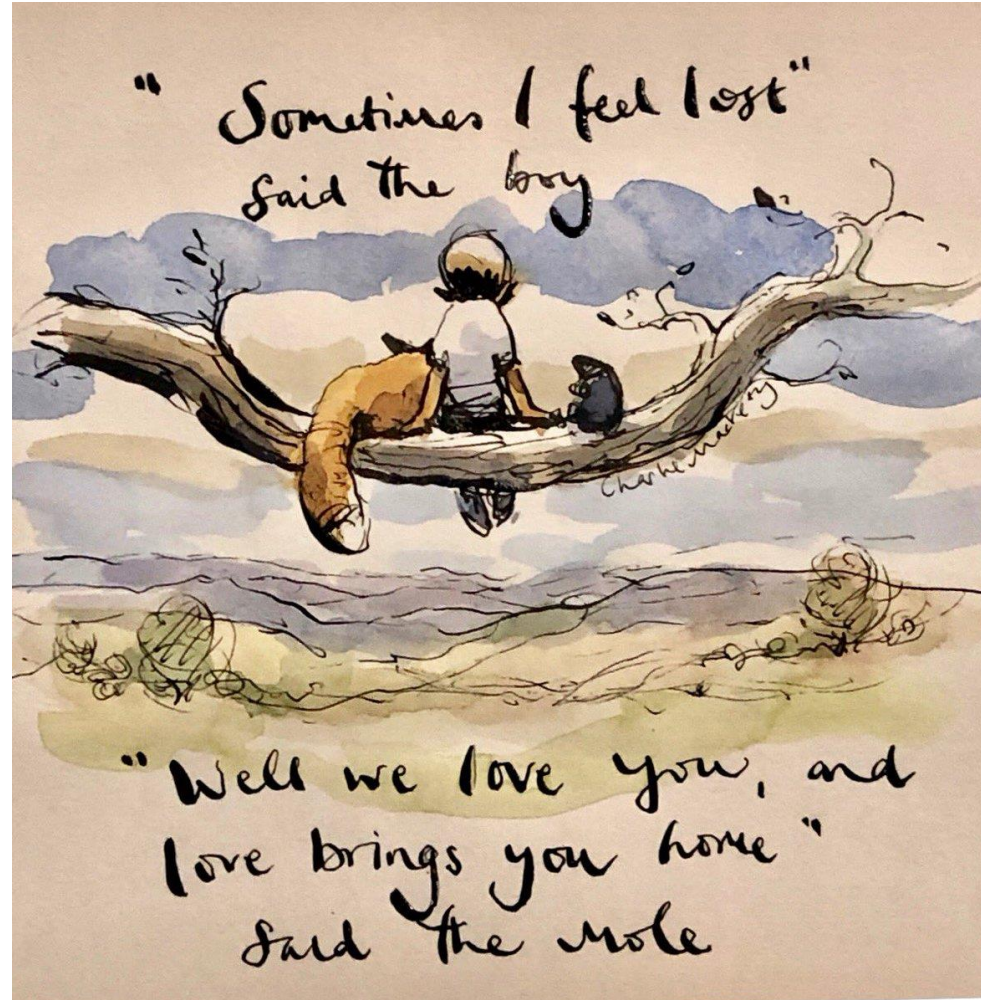 " Sometimes I feel lost"
said the boy
Charlie Mackesy
"Well we love you, and
love brings you home"
said the mole